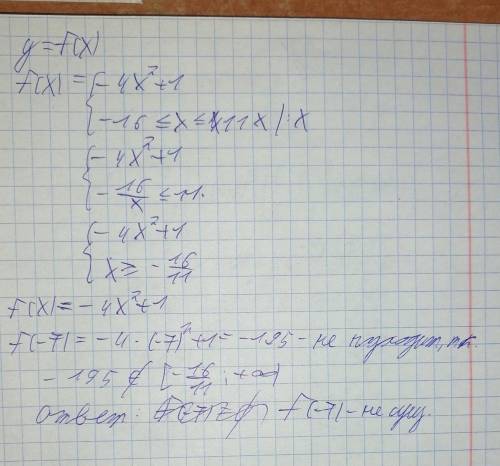 y = f(x)
f(x) = { -4x²+1
-16 ≤ x ≤ 11x /: x
{ -4x²+1
-16/x ≤ 11.
{ -4x²+1
x ≥ -16/11
f(x) = -4x²+1
f(-7) = -4 · (-7)²+1 = -195 - не подходит, т.к.
-195 ∉ [-16/11; +∞)
ответ: f(-7) - не сущ.